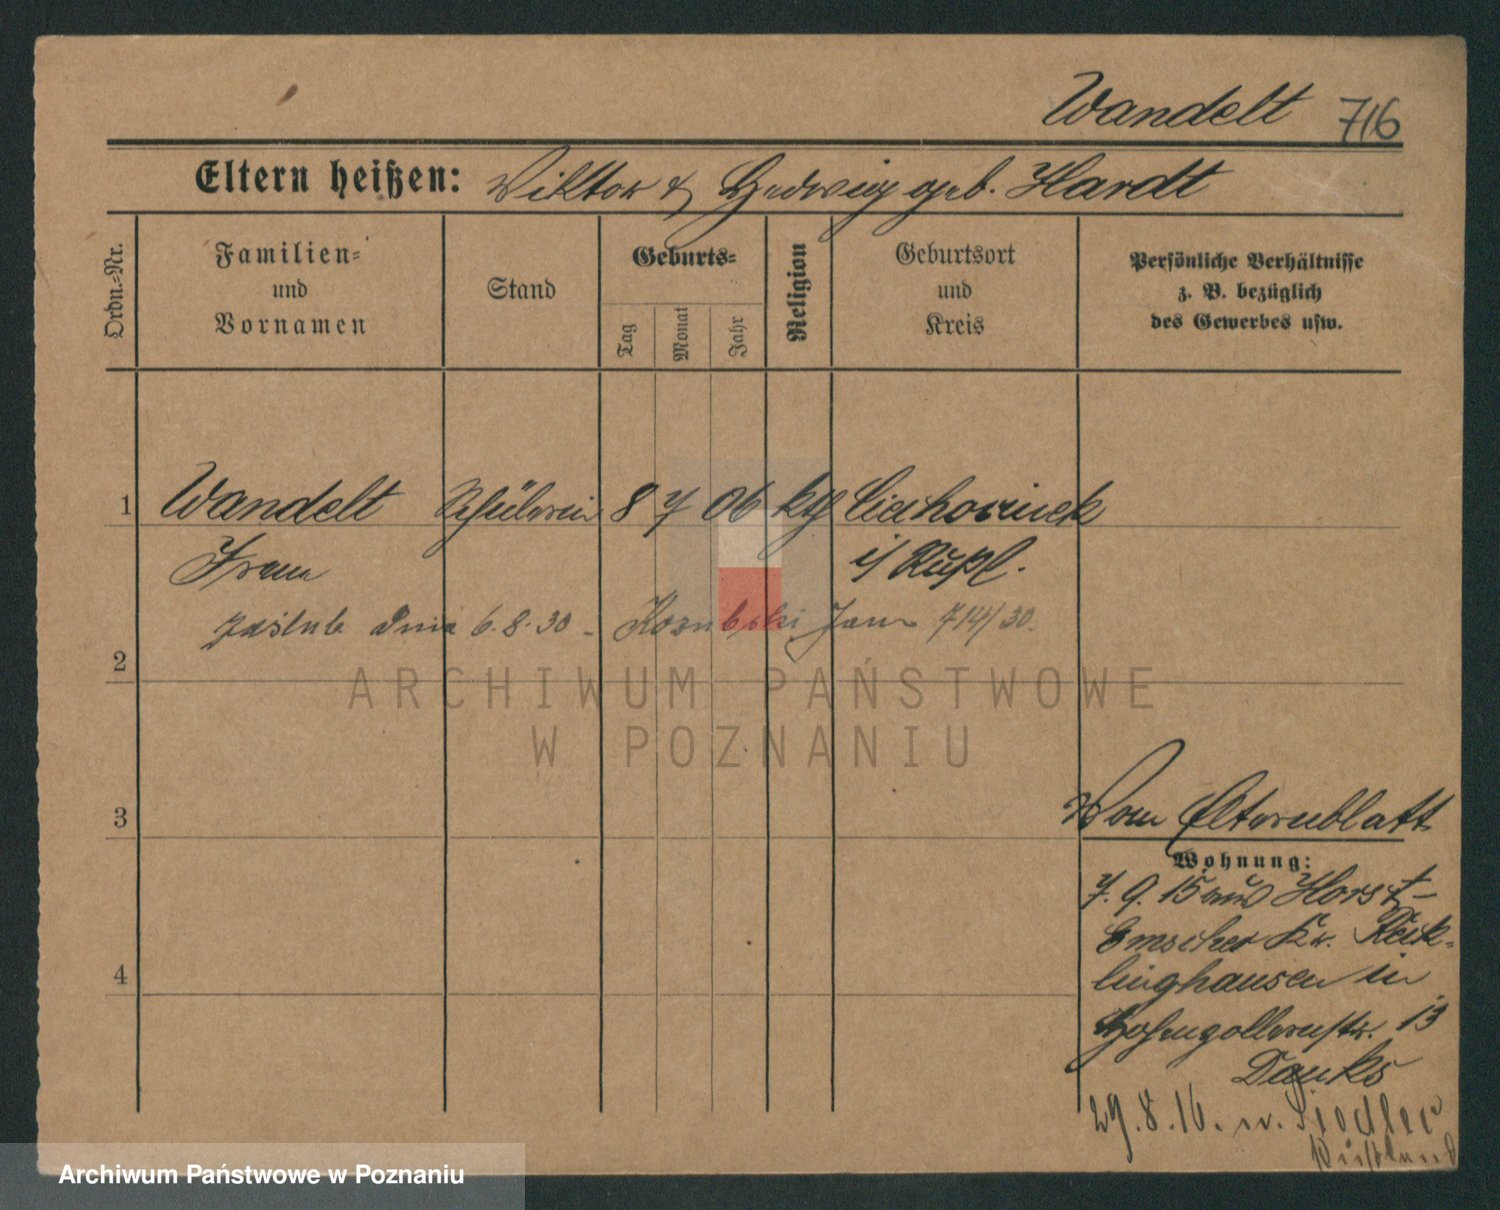 Wandelt 716
Eltern heißen: Viktor & Hedwig geb. Hardt
Ordn.-Nr.
Familien-
und
Vornamen
Stand
Geburts-
Tag
Monat
Jahr
Religion
Geburtsort
und
Kreis
Persönliche Verhältnisse
z. B. bezüglich
des Gewerbes usw.
1 Wandelt Schülerin 8 7 06 kth Ciechocinek
Irene i/ Rußl.
zaślub. dnia 6.8.30 - Kozubski Jan 714/30.
2
ARCHIWUM PAŃSTWOWE
W POZNANIU
3
Vom Elternblatt
Wohnung:
7.9.15 aus Horst-
Emscher Kr. Reck-
linghausen in
Hohenzollernstr. 13
29.8.16. n.
Rußland
4
Archiwum Państwowe w Poznaniu